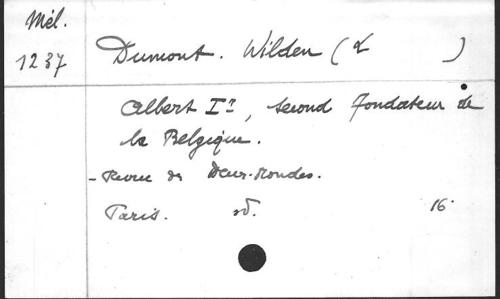 Mél.
1237
Dumont. Wilden (L )
Albert Ier, second fondateur de
la Belgique.
- Revue des Deux-Mondes.
Paris. sd. 16